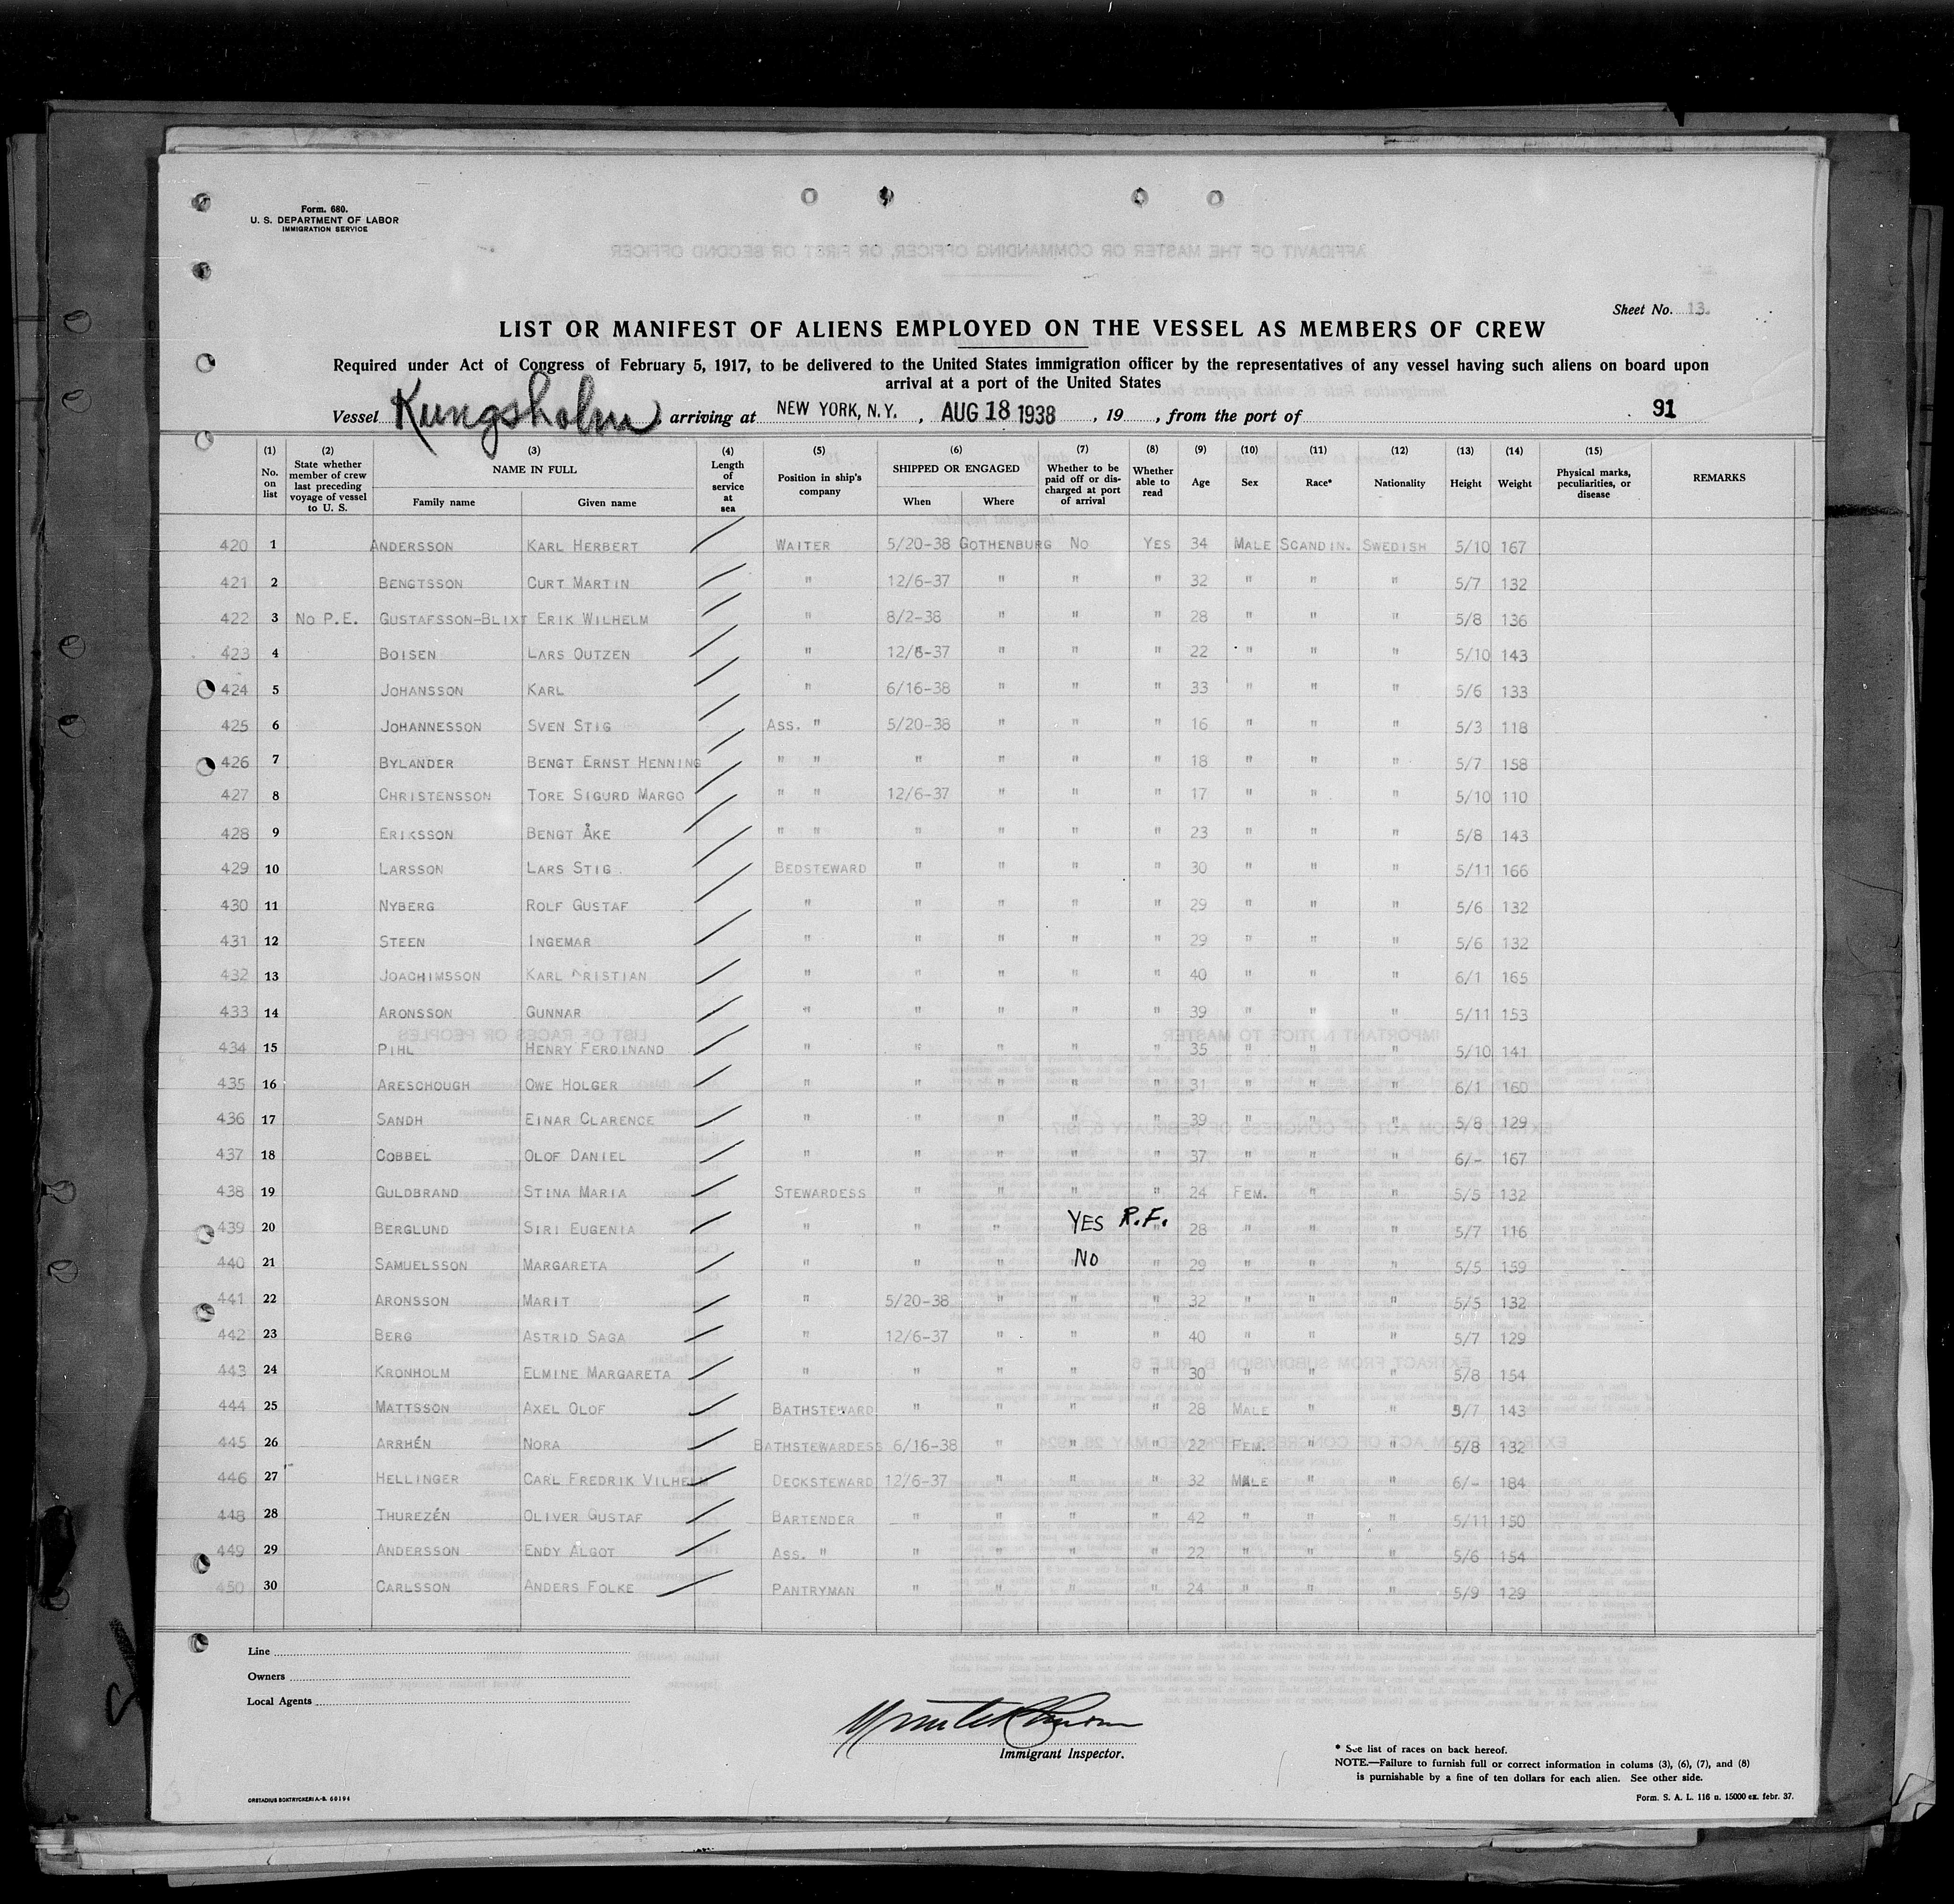 Form. 680.
U. S. DEPARTMENT OF LABOR
IMMIGRATION SERVICE
Sheet No. 13.
LIST OR MANIFEST OF ALIENS EMPLOYED ON THE VESSEL AS MEMBERS OF CREW
Required under Act of Congress of February 5, 1917, to be delivered to the United States immigration officer by the representatives of any vessel having such aliens on board upon
arrival at a port of the United States
Vessel Kungsholm, arriving at NEW YORK, N.Y., AUG 18 1938, 19 , from the port of 91
(1) No. on list (2) State whether member of crew last preceding voyage of vessel to U. S. (3) NAME IN FULL Family name Given name (4) Length of service at sea (5) Position in ship's company (6) SHIPPED OR ENGAGED When Where (7) Whether to be paid off or discharged at port of arrival (8) Whether able to read (9) Age (10) Sex (11) Race* (12) Nationality (13) Height (14) Weight (15) Physical marks, peculiarities, or disease REMARKS
420 1 ANDERSSON KARL HERBERT WAITER 5/20-38 GOTHENBURG No YES 34 MALE SCANDIN. SWEDISH 5/10 167
421 2 BENGTSSON CURT MARTIN " 12/6-37 " " " 32 " " " 5/7 132
422 3 No P.E. GUSTAFSSON-BLIXT ERIK WILHELM " 8/2-38 " " " 28 " " " 5/8 136
423 4 BOISEN LARS OUTZEN " 12/6-37 " " " 22 " " " 5/10 143
424 5 JOHANSSON KARL " 6/16-38 " " " 33 " " " 5/6 133
425 6 JOHANNESSON SVEN STIG Ass. " 5/20-38 " " " 16 " " " 5/3 118
426 7 BYLANDER BENGT ERNST HENNING " " " " " " 18 " " " 5/7 158
427 8 CHRISTENSSON TORE SIGURD MARGO " " 12/6-37 " " " 17 " " " 5/10 110
428 9 ERIKSSON BENGT ÅKE " " " " " " 23 " " " 5/8 143
429 10 LARSSON LARS STIG BEDSTEWARD " " " " 30 " " " 5/11 166
430 11 NYBERG ROLF GUSTAF " " " " " 29 " " " 5/6 132
431 12 STEEN INGEMAR " " " " " 29 " " " 5/6 132
432 13 JOACHIMSSON KARL KRISTIAN " " " " " 40 " " " 6/1 165
433 14 ARONSSON GUNNAR " " " " " 39 " " " 5/11 153
434 15 PIHL HENRY FERDINAND " " " " " 35 " " " 5/10 141
435 16 ARESCHOUGH OWE HOLGER " " " " " 31 " " " 6/1 160
436 17 SANDH EINAR CLARENCE " " " " " 39 " " " 5/8 129
437 18 COBBEL OLOF DANIEL " " " " " 37 " " " 6/- 167
438 19 GULDBRAND STINA MARIA STEWARDESS " " " " 24 FEM. " " 5/5 132
439 20 BERGLUND SIRI EUGENIA " " " YES R.F. " 28 " " " 5/7 116
440 21 SAMUELSSON MARGARETA " " " No " 29 " " " 5/5 159
441 22 ARONSSON MARIT " 5/20-38 " " " 32 " " " 5/5 132
442 23 BERG ASTRID SAGA " 12/6-37 " " " 40 " " " 5/7 129
443 24 KRONHOLM ELMINE MARGARETA " " " " " 30 " " " 5/8 154
444 25 MATTSSON AXEL OLOF BATHSTEWARD " " " " 28 MALE " " 5/7 143
445 26 ARRHÉN NORA BATHSTEWARDESS 6/16-38 " " " 22 FEM. " " 5/8 132
446 27 HELLINGER CARL FREDRIK VILHELM DECKSTEWARD 12/6-37 " " " 32 MALE " " 6/- 184
448 28 THUREZÉN OLIVER GUSTAF BARTENDER " " " " 42 " " " 5/11 150
449 29 ANDERSSON ENDY ALGOT Ass. " " " " " 22 " " " 5/6 154
450 30 CARLSSON ANDERS FOLKE PANTRYMAN " " " " 24 " " " 5/9 129
Line
Owners
Local Agents
Immigrant Inspector.
* See list of races on back hereof.
NOTE.—Failure to furnish full or correct information in colums (3), (6), (7), and (8)
is punishable by a fine of ten dollars for each alien. See other side.
ORSTADIUS BOKTRYCKERI A.-B. 60194
Form. S. A. L. 116 u. 15000 ex. febr. 37.